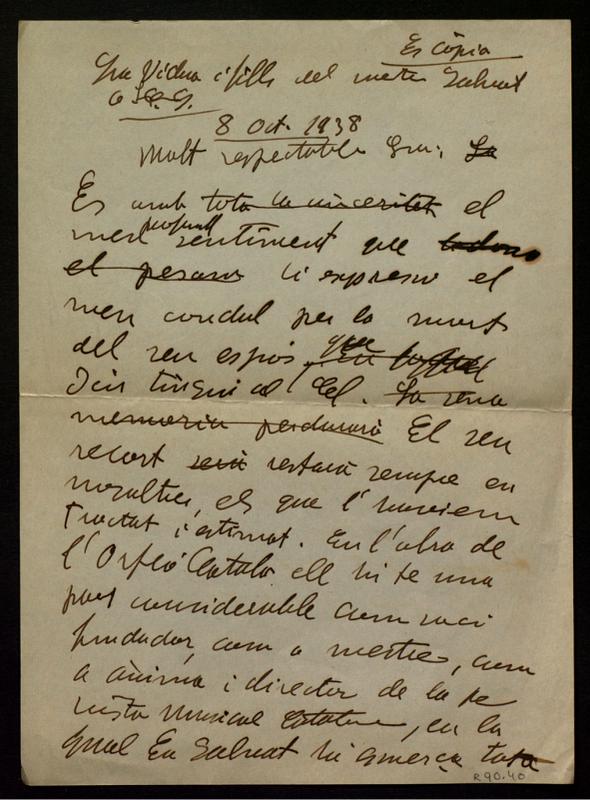 Es còpia
Sra Vidua i fills del mestre Salvat
8 Oct. 1938
Molt respectable Sra: La
Es amb tota la sinceritat el
profund
meu sentiment que
el pesame li expresso el
meu condol per la mort
del seu espòs que
Deu tingui al Cel. La seva
memoria perdurarà El seu
recort serà restarà sempre en
nosaltres, els que l'haviem
tractat i estimat. En l'obra de
l'Orfeó Català ell hi te una
part considerable com soci
fundador, com a mestre, com
a ànima i director de la Re
vista Musical Catalana, en la
qual En Salvat hi esmerça tota
R 90.40